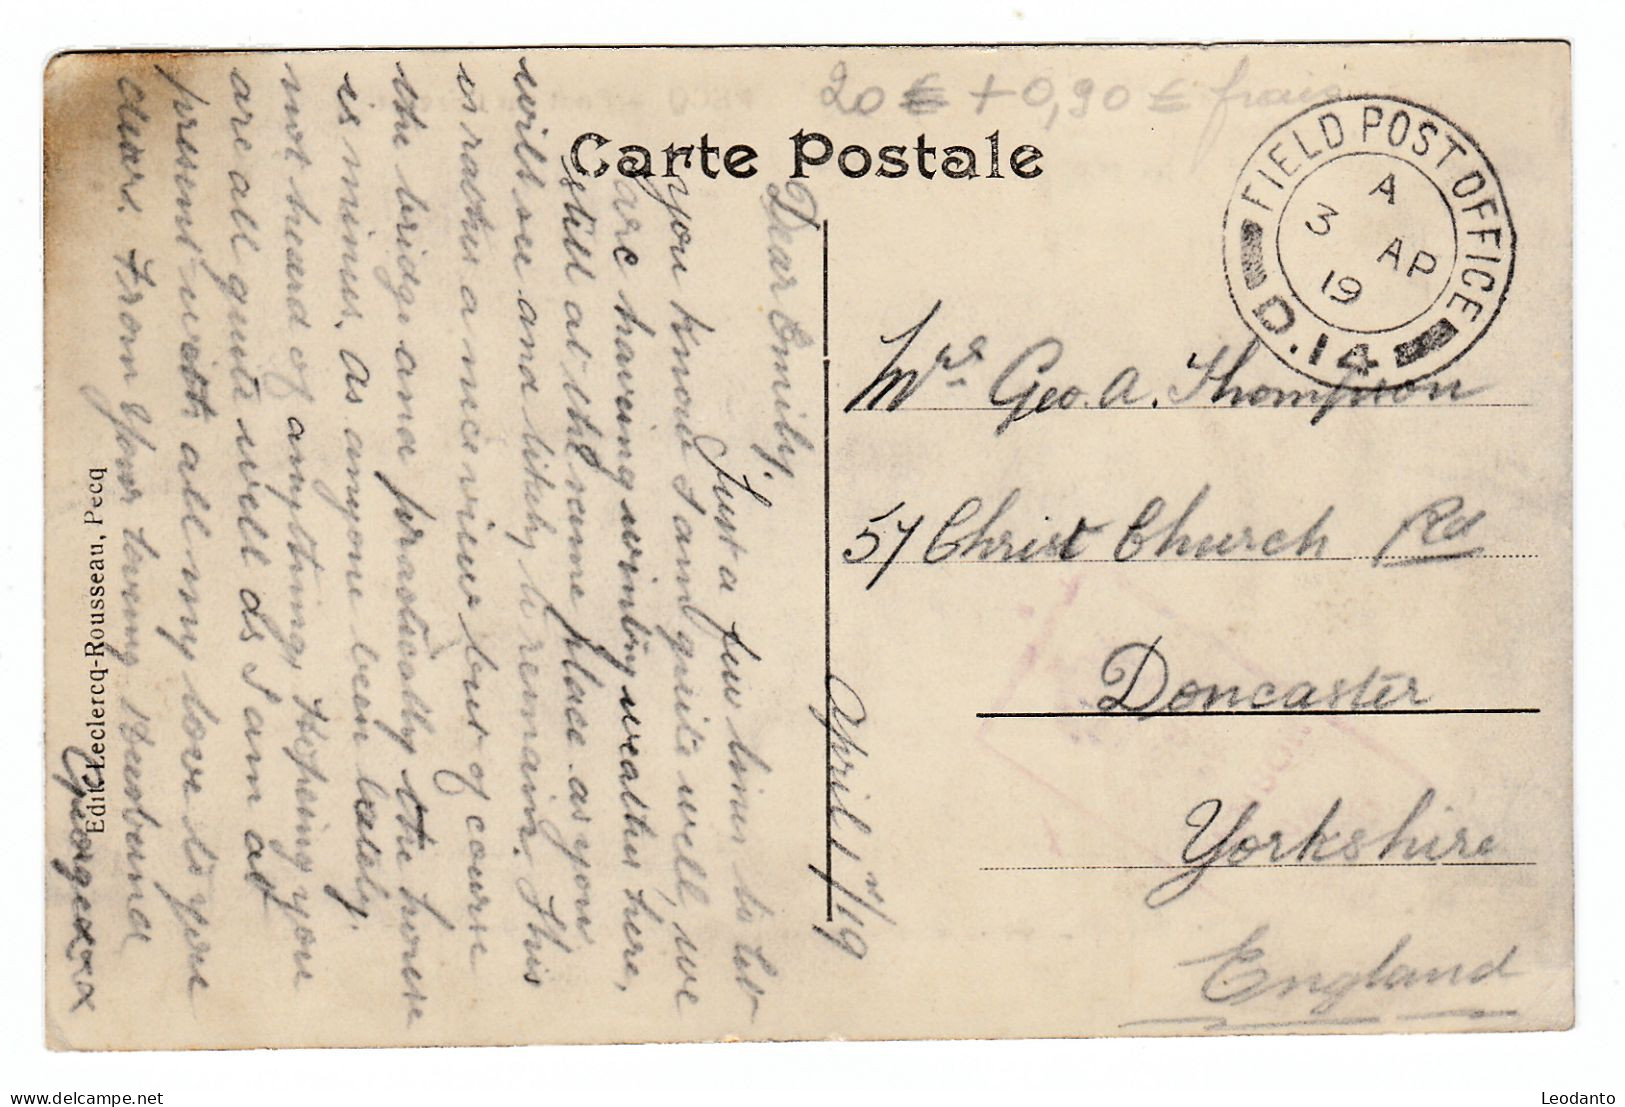 20 € + 0,90 € frais
Carte Postale
FIELD POST OFFICE
A
3 AP
19
D.14
Dear Emily,
Just a few lines to let
you know I am quite well, we
are having wintry weather here,
still at the same place as you
will see and likely to remain. This
is rather a nice view but of course
the bridge and practically the house
is minus. As anyone been lately.
not heard of anything, Hopeing you
are all quite well as I am at
present with all my love to you
dears. From Your Loving Husband
George xxx
April 1/19
Mrs Geo. A. Thompson
57 Christ Church Rd
Doncaster
Yorkshire
England
Edit. Leclercq-Rousseau, Pecq
delcampe.net
Leodanto